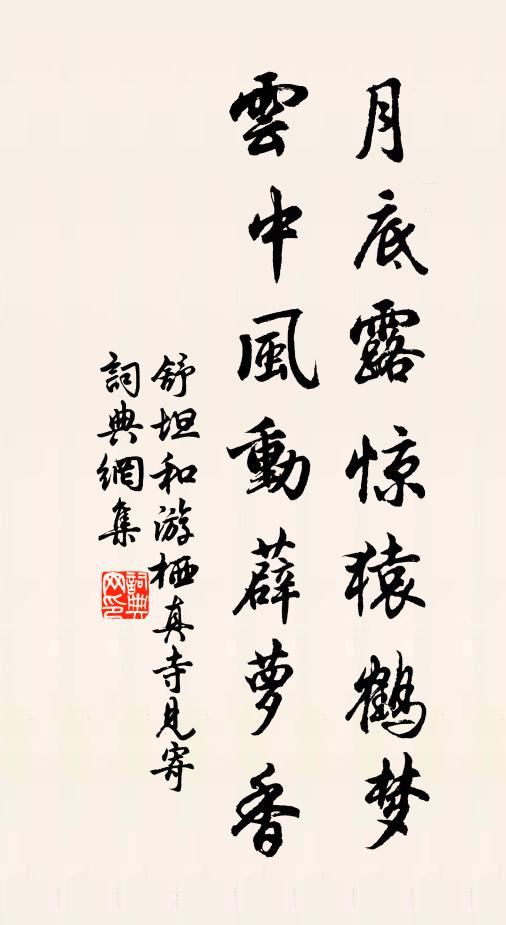 月底露惊猿鹤梦
雲中風動薜萝香
舒坦和游栖真寺見寄
詞典網集
詞典网印